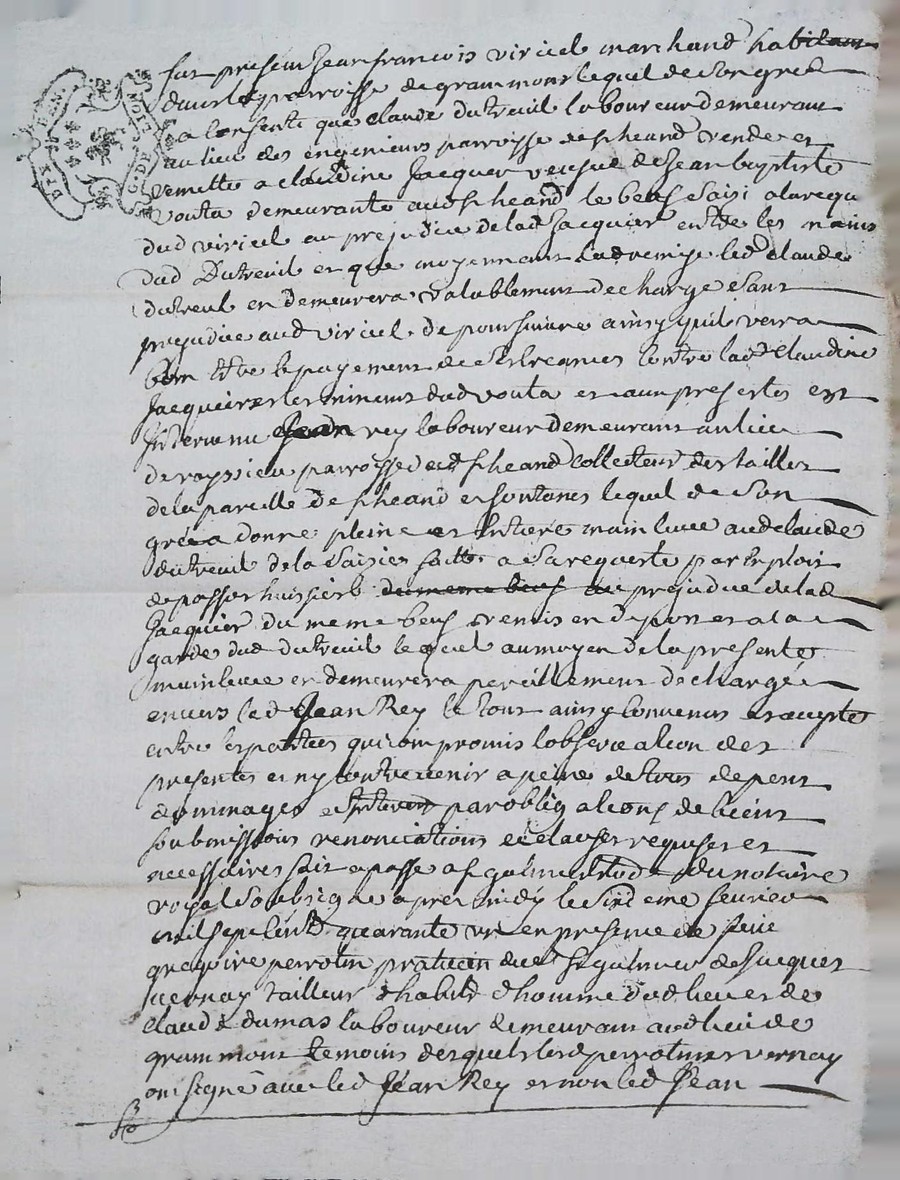 fut present Jean francois viriciel marchand habitant
dans la parroisse de grammont lequel de son gré
a consenti que claude dutreuil laboureur demeurant
au lieu des engenieurs parroisse de st heand vende et
remette a claudine Jacquier veufve de Jean baptiste
vouta demeurante aud st heand le beuf saisi a la requ
dud viriciel au prejudice de lad Jacquier entre les mains
dud Dutreuil et que moyennant lad remise led claude
dutreuil en demeurera valablement decharge sans
prejudice aud viriciel de poursuivre ainsy quil verra
bon etre le payement de ses creances contre lad Claudine
Jacquier et les mineurs dud vouta et aux presentes est
Intervenu Jean rey laboureur demeurant au lieu
de vayssieu parroisse dud st heand collecteur des tailles
de la parcelle de st heand et fontanes lequel de son
gré a donné pleine et entiere main levée aud claude
dutreuil de la saisie faitte a sa requeste par exploit
de huissier du meme beuf au prejudice de lad
Jacquier du meme beuf remis en depost et a la
garde dud dutreuil lequel au moyen de la presente
main levée en demeurera pareillement dechargé
envers led Jean Rey le tout ainsy convenu et accepté
entre les parties qui ont promis lobservation des
presentes et ny contrevenir a peine de tous depens
dommages et par obligations de biens
soubmissions renonciations et clauses requises et
necessaires fait et passé a st galmier du notaire
royal soubsigné apres midy le fevrier
mil sept cent quarante un en presence de
gregoire perrotin praticien dud st galmier de Jacques
vernay tailleur dhabits dhomme dud lieu et de
claude dumas laboureur demeurant aud lieu de
grammont temoins desquels led perrotin et vernay
ont signé avec led Jean Rey et non led Jean